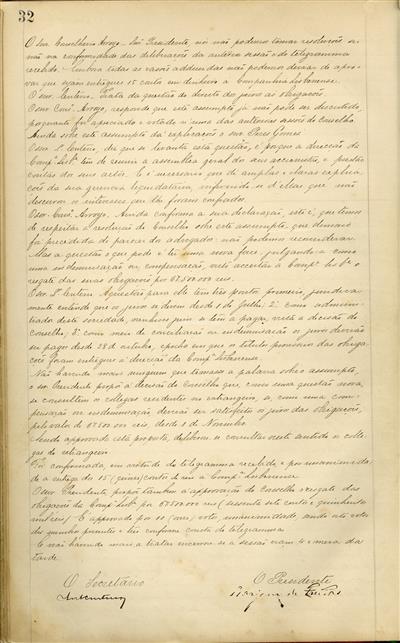 32
O Snr. Conselheiro Arroyo. Snr. Presidente, nós não podemos tomar resoluções, se-
não na conformidade das deliberações da anterior sessão e do telegramma
recebido. Embora todas as rasões adduzidas não podemos deixar de appro-
var que sejam entregues 15 contos em dinheiro á Companhia Lisbonense.
O snr. Centeno, Trata da questão do direito dos juros ás obrigações.
O snr. Cons.º Arroyo, responde que este assumpto já não pode ser discutido,
porquanto foi apreciado e votado n'uma das anteriores sessões do Conselho
Ainda sobre este assumpto dá explicações o snr. Pires Gomes
O snr. L. Centeno, diz que se levanta esta questão, é porque a direcção da
Comp.ª Lisb.e tem de reunir a assemblea geral dos seus accionistas, e prestar
contas dos seus actos. E é necessario que dê amplas e claras explica-
ções da sua gerencia liquidataria, inferindo-se d'ellas que não
descurou os interesses que lhe foram confiados.
O snr. Cons. Arroyo, Ainda confirma a sua declaração, isto é, que temos
de respeitar a resolução do Conselho sobre este assumpto, que demais
foi precedida do parecer do advogado: não podemos reconsiderar.
Mas a questão o que pode é ter uma nova face, julgando-a como
uma indemnisação ou compensação, visto acceitar a Comp.ª Lisb.e o
resgate das suas obrigações por 67.500.000 reis.
O snr. L. Centeno. A questão para elle tem tres pontos, primeiro, juridica-
mente entende que os juros se devem desde 1 de Julho; 2.º como adminis-
trador desta sociedade, nenhuns juros se tem a pagar, vista a decisão do
Conselho; 3.º como meio de conciliação ou indemnisação os juros deverão
ser pagos desde 28 de outubro, epocha em que os titulos provisorios das obriga-
ções foram entregues á direcção da Comp.ª Lisbonense.
Não havendo mais ninguem que tomasse a palavra sobre o assumpto,
o snr. Presidente propõe á decisão do Conselho que, como uma questão nova,
se consultem os collegas residentes no estrangeiro, se, como uma com-
pensação ou indemnisação deverão ser satisfeitos os juros das obrigações,
pelo valor de 67.500.000 reis, desde 1 de Novembro
Sendo approvada esta proposta, deliberou-se consultar neste sentido os colle-
gas do estrangeiro.
Foi confirmada, em virtude do telegramma recebido, e por unanimida-
de a entrega dos 15 (quinze) contos de reis á Comp.ª Lisbonense.
O snr. Presidente propõe tambem á approvação do Conselho o resgate das
obrigações da Comp.ª Lisb.e por 67.500.000 reis (sessenta e sete contos e quinhentos
mil reis). É approvado por 10 (dez) votos, unanimidade, sendo sete votos
dos membros presentes e tres conforme consta do telegramma.
E não havendo mais a tratar encerrou-se a sessão eram 4 e meia da
tarde.
O Secretário
O Presidente